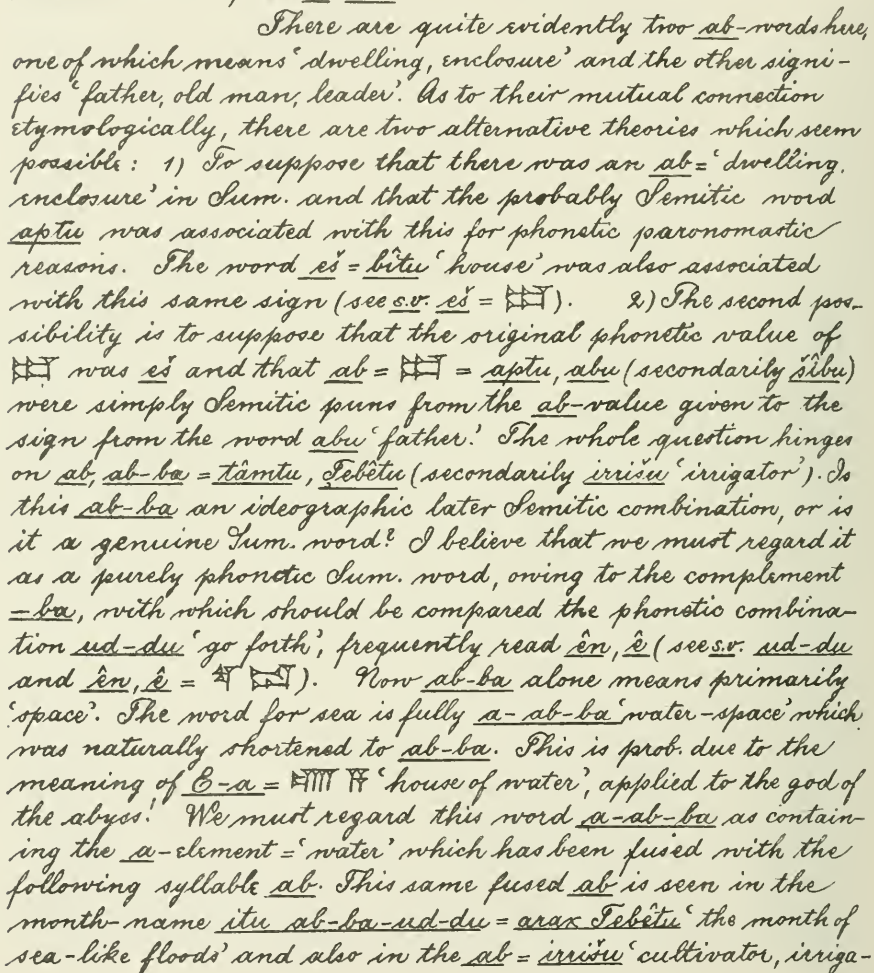 There are quite evidently two ab-words here,
one of which means 'dwelling, enclosure' and the other signi-
fies 'father, old man, leader'. As to their mutual connection
etymologically, there are two alternative theories which seem
possible: 1) To suppose that there was an ab = 'dwelling,
enclosure' in Sum. and that the probably Semitic word
aptu was associated with this for phonetic paronomastic
reasons. The word eš = bîtu 'house' was also associated
with this same sign (see s.v. eš = 𒀊). 2) The second pos-
sibility is to suppose that the original phonetic value of
𒀊 was eš and that ab = 𒀊 = aptu, abu (secondarily šîbu)
were simply Semitic puns from the ab-value given to the
sign from the word abu 'father'. The whole question hinges
on ab, ab-ba = tâmtu, Ṭebêtu (secondarily irrišu 'irrigator'). Is
this ab-ba an ideographic later Semitic combination, or is
it a genuine Sum. word? I believe that we must regard it
as a purely phonetic Sum. word, owing to the complement
-ba, with which should be compared the phonetic combina-
tion ud-du 'go forth', frequently read ên, ê (see s.v. ud-du
and ên, ê = 𒌓 𒁺). Now ab-ba alone means primarily
'space'. The word for sea is fully a-ab-ba 'water-space' which
was naturally shortened to ab-ba. This is prob. due to the
meaning of E-a = 𒂍 𒀀 'house of water', applied to the god of
the abyss! We must regard this word a-ab-ba as contain-
ing the a-element = 'water' which has been fused with the
following syllable ab. This same fused ab is seen in the
month-name itu ab-ba-ud-du = arax Ṭebêtu 'the month of
sea-like floods' and also in the ab = irrišu 'cultivator, irriga-